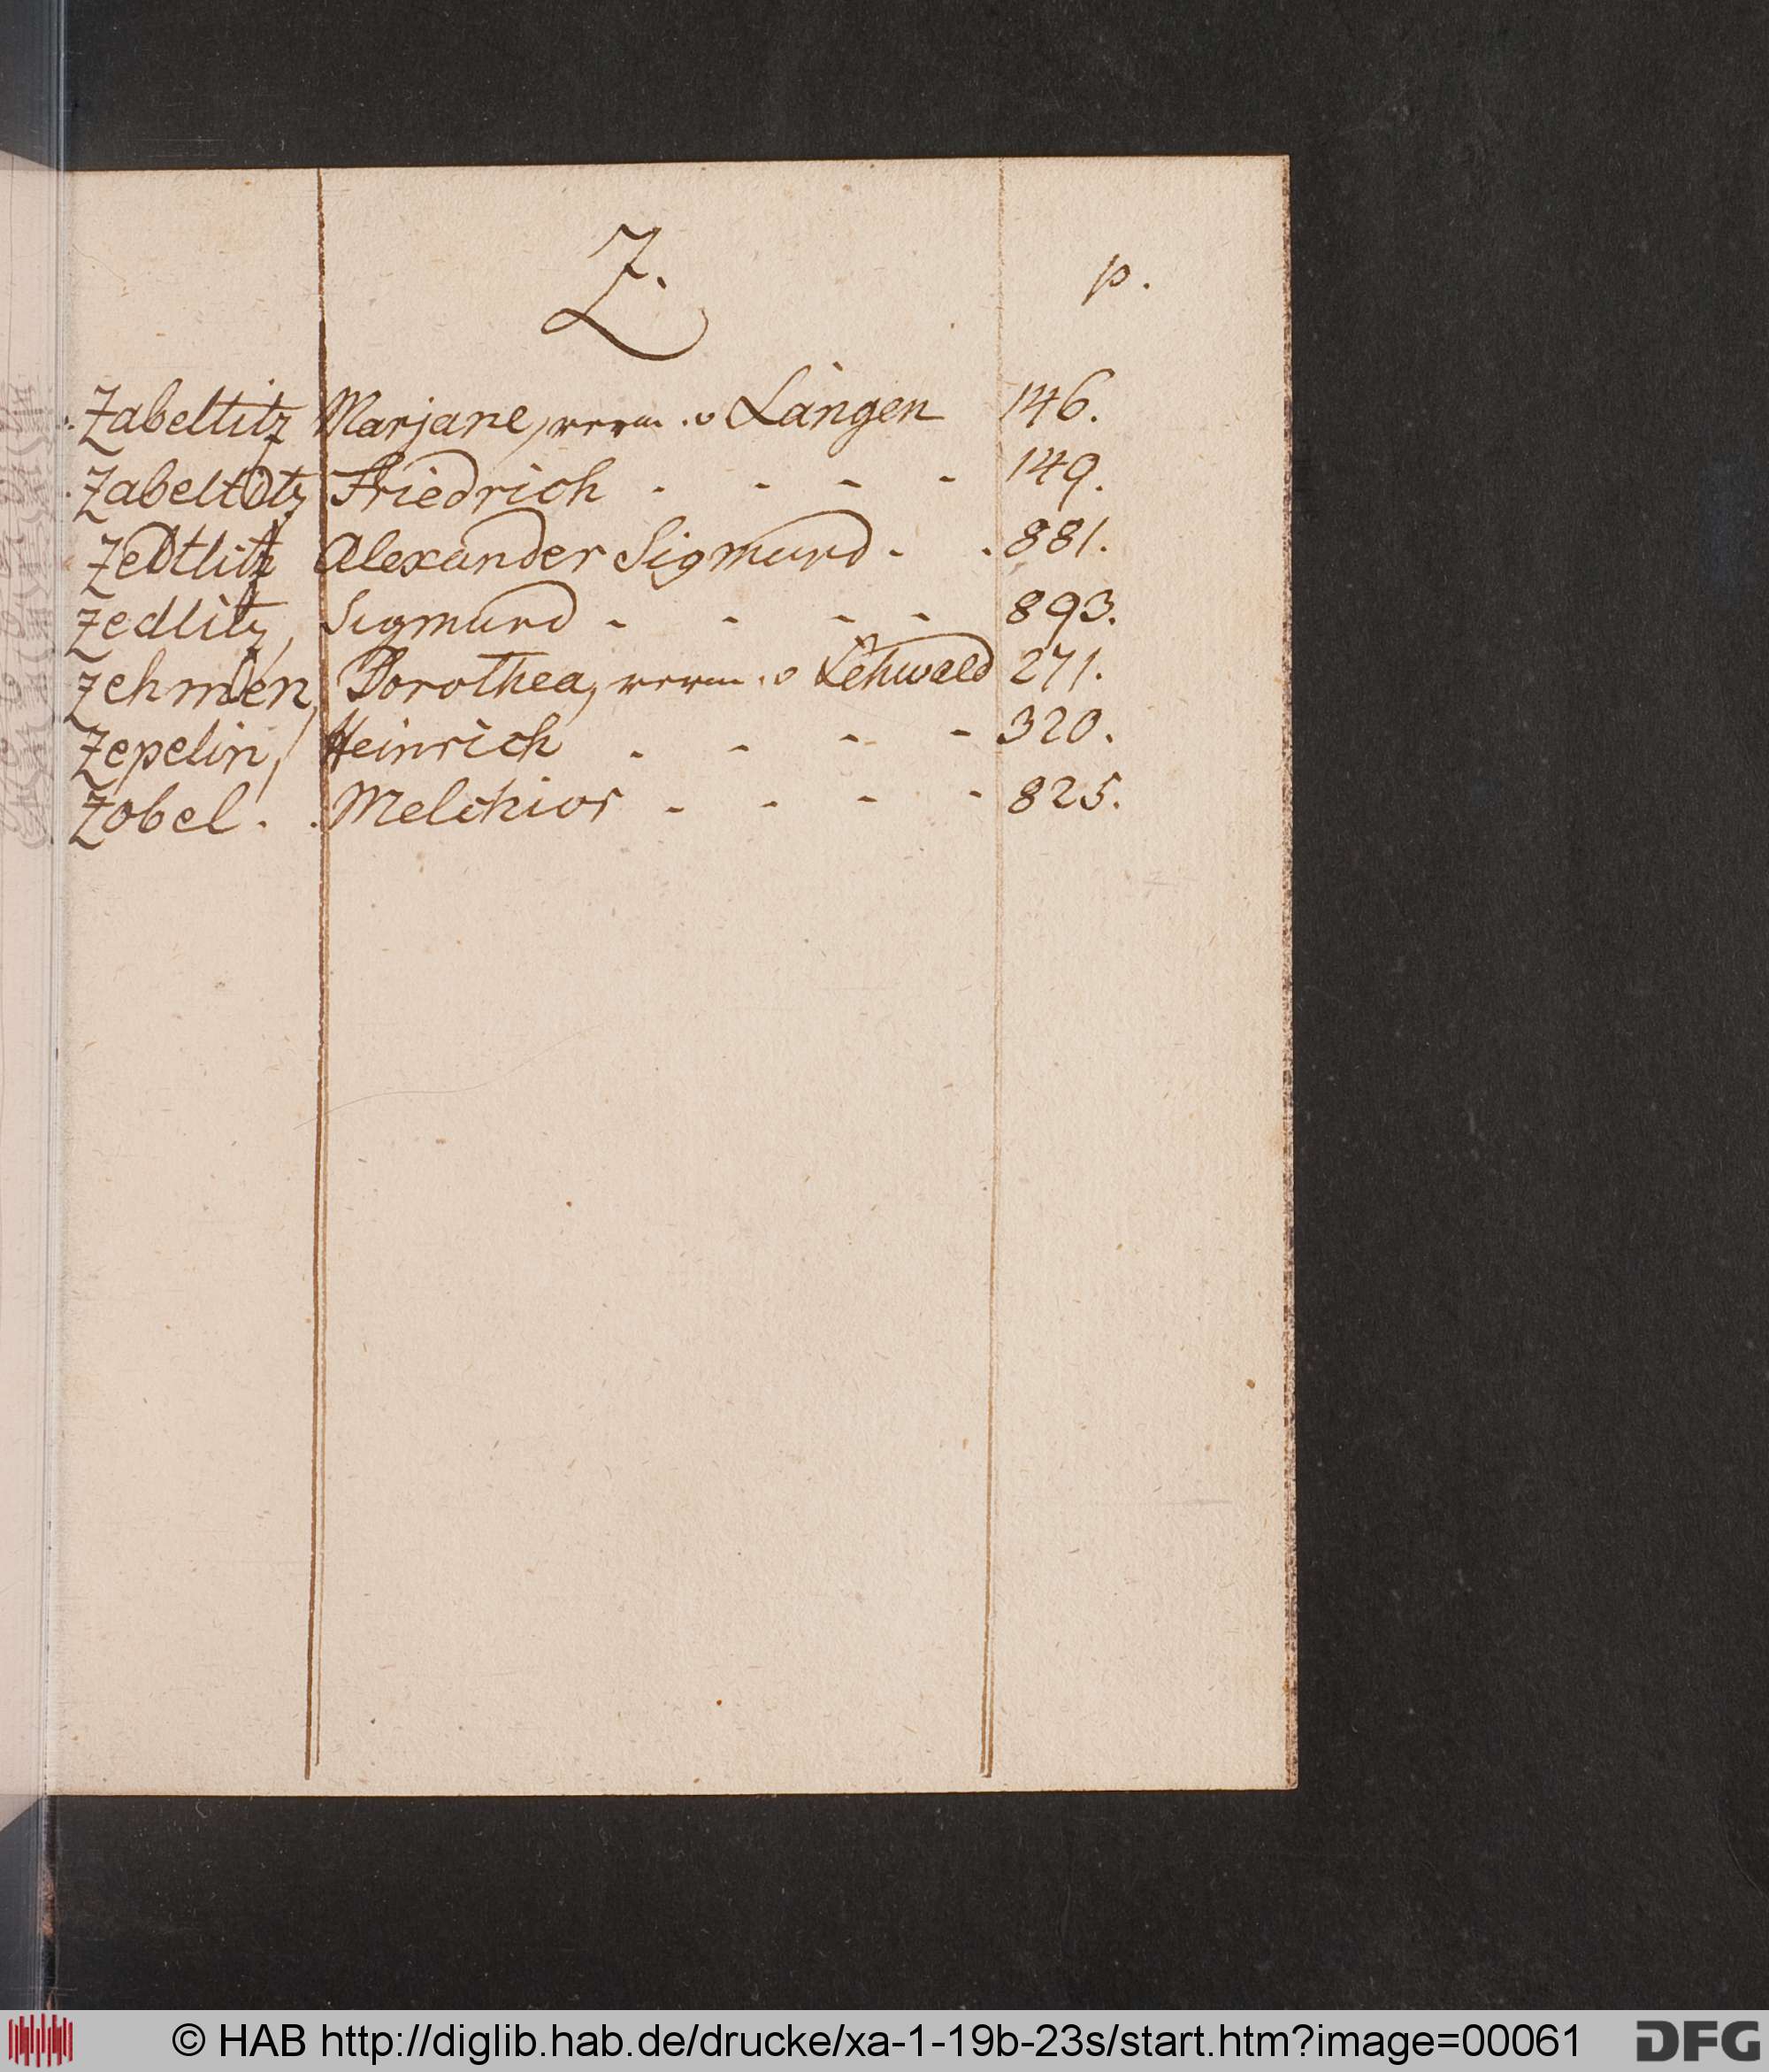 Z.
p.
Zabeltitz Marjane, verm. v Langen 146.
Zabeltitz Friedrich - - - - 149.
Zedtlitz Alexander Sigmund - - 881.
Zedlitz, Sigmund - - - - 893.
Zehmen, Dorothea, verm. v Lehwald 271.
Zepelin, Heinrich - - - - 320.
Zobel. Melchior - - - - 825.
© HAB http://diglib.hab.de/drucke/xa-1-19b-23s/start.htm?image=00061
DFG